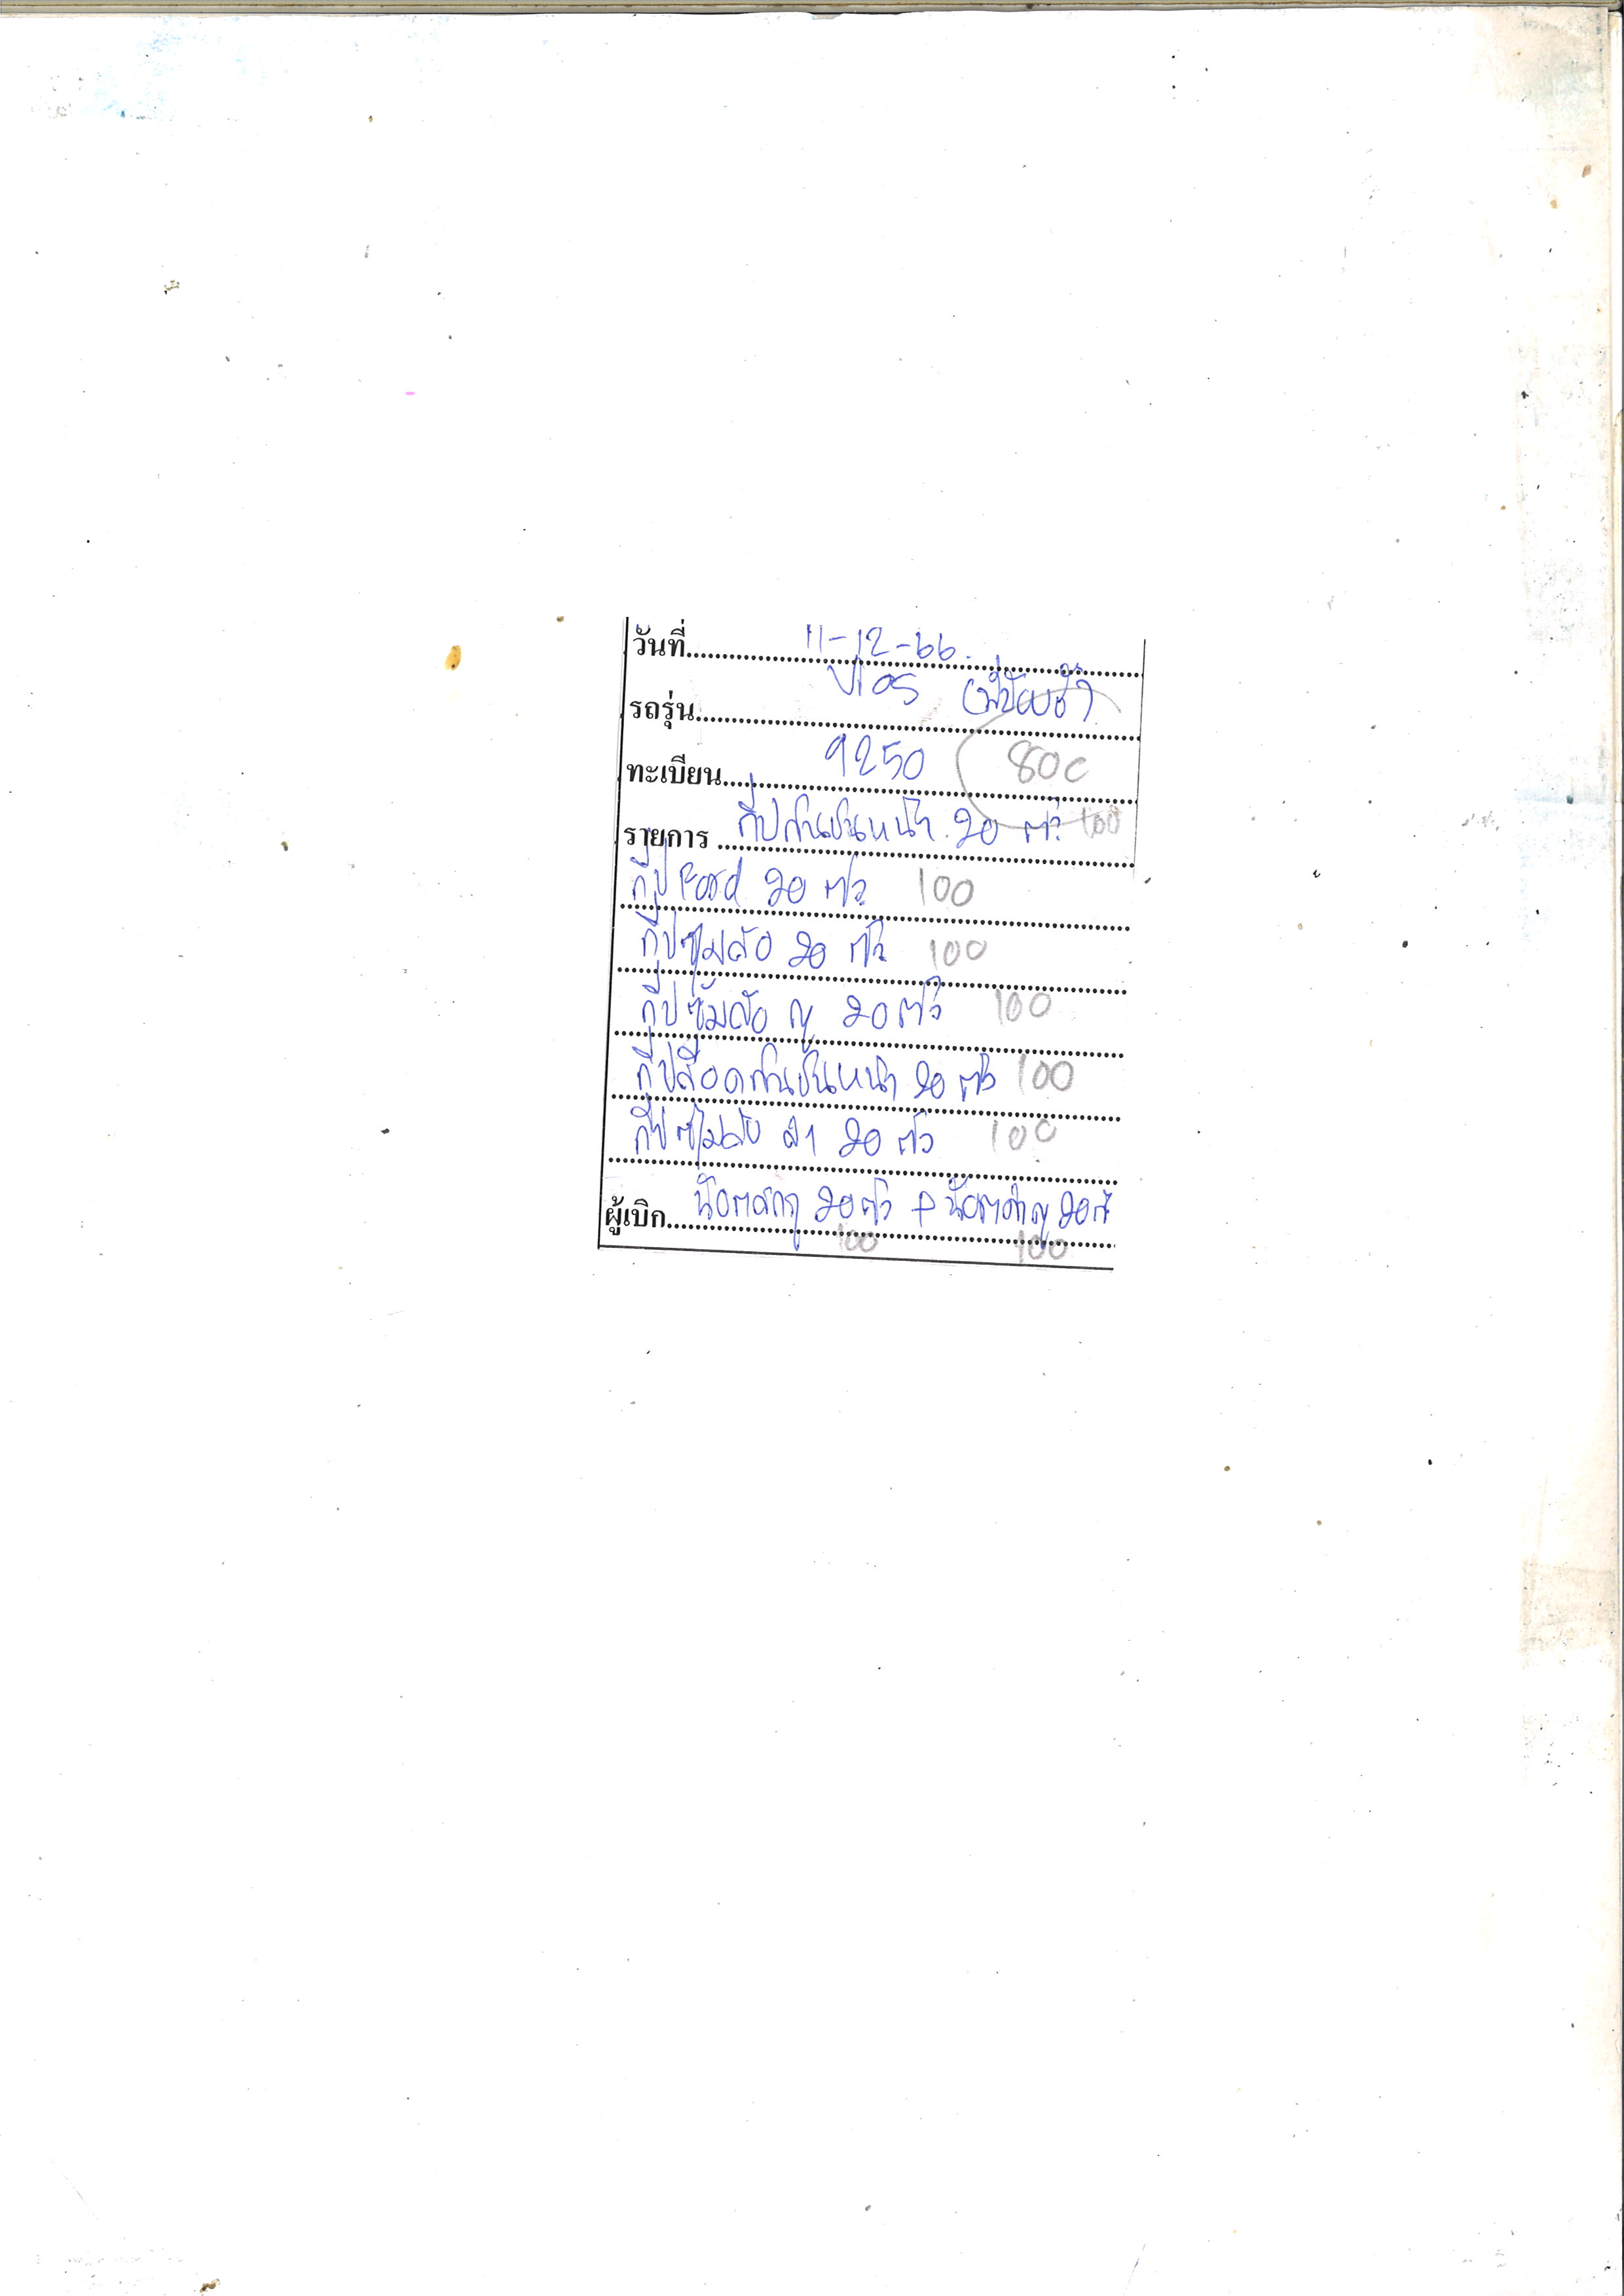 วันที่ 11-12-66.
รถรุ่น Vios
ทะเบียน 9250 800
รายการ กิ๊ปกันชนหน้า 20 ตัว 100
กิ๊ป Ford 20 ตัว 100
กิ๊ปซุ้มล้อ 20 ตัว 100
กิ๊ปซุ้มล้อ ญ 20 ตัว 100
กิ๊ปล็อคกันชนหน้า 20 ตัว 100
กิ๊ปซุ้มล้อ 20 ตัว 100
ผู้เบิก 20 ตัว + 20
100 100